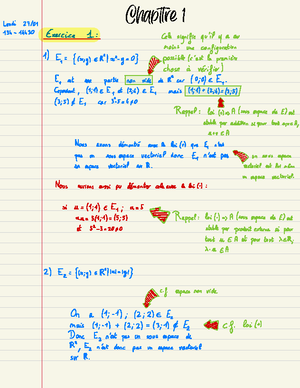 Chapitre 1
Lundi 27/01
13h - 14h30
Exercice 1 :
Cela signifie qu'il y a au
moins une configuration
possible (c'est la première
chose à vérifier)
1) E₁ = {(x;y) ∈ ℝ² | x² - y = 0}
E₁ est une partie non vide de ℝ² car (0;0) ∈ E₁.
Cependant, (1;1) ∈ E₁ et (2;4) ∈ E₁ mais (1;1) + (2;4) = (3;5)
(3;5) ∉ E₁ car 3² - 5 ≠ 0
Rappel : loi (+) → A (sous espace de E) est
stable par addition si pour tout
Nous avons démontré avec la loi (+) que E₁ n'est
pas un sous espace vectoriel donc E₁ n'est pas
un espace vectoriel sur ℝ.
un sous espace
vectoriel est lui même
un espace vectoriel.
Nous aurions aussi pu démontrer cela avec la loi (·) :
si u = (1;1) ∈ E₁ ; α = 5
αu = 5(1;1) = (5;5)
et 5² - 5 = 20 ≠ 0
Rappel : loi (·) → A (sous espace de E) est
stable par produit externe si pour
tout u ∈ A et pour tout λ ∈ ℝ,
λ·u ∈ A
2) E₂ = {(x;y) ∈ ℝ² | |x| = |y|}
c.f espace non vide
On a (1;-1) ; (2;2) ∈ E₂
mais (1;-1) + (2;2) = (3;1) ∉ E₂
c.f. loi (+)
Donc E₂ n'est pas un sous espace de
ℝ², E₂ n'est donc pas un espace vectoriel
sur ℝ.